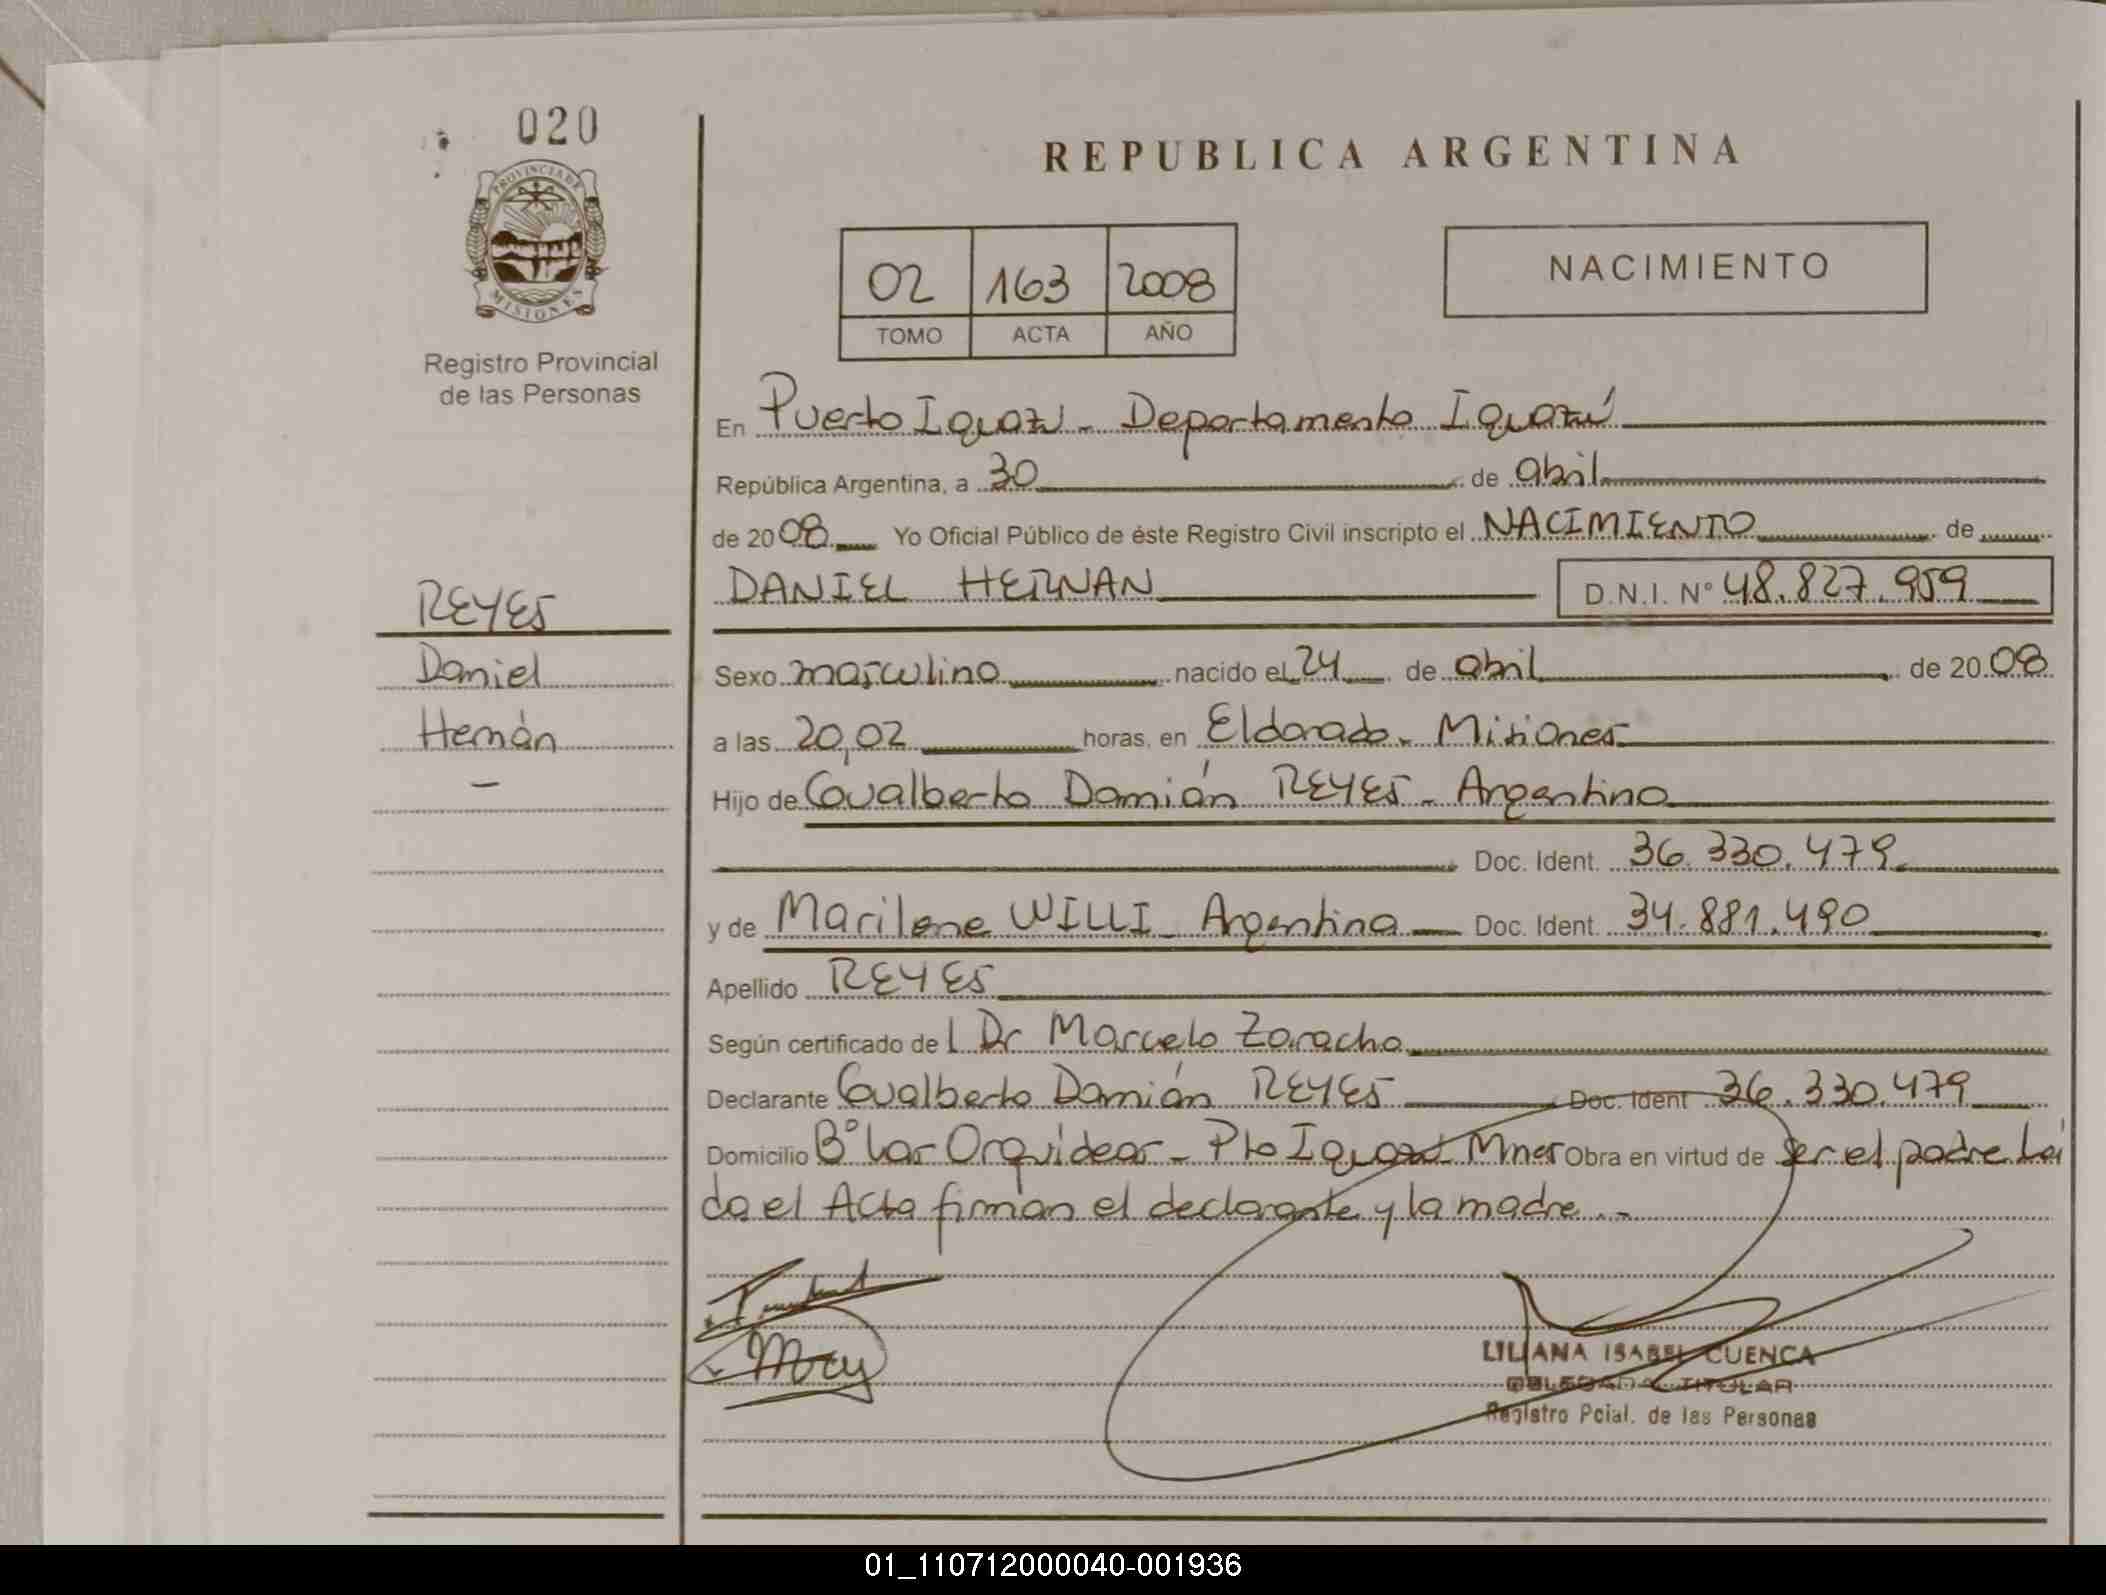 020
PROVINCIA DE
MISIONES
Registro Provincial
de las Personas
REYES
Daniel
Hernán
-
REPUBLICA ARGENTINA
02 163 2008
TOMO ACTA AÑO
NACIMIENTO
En Puerto Iguazú - Departamento Iguazú
República Argentina, a 30 de abril
de 2008 Yo Oficial Público de éste Registro Civil inscripto el NACIMIENTO de
DANIEL HERNAN D.N.I. N° 48.827.959
Sexo masculino nacido el 24 de abril de 2008
a las 20,02 horas, en Eldorado - Misiones
Hijo de Gualberto Damián REYES - Argentino
Doc. Ident. 36.330.479
y de Marilene WILLI - Argentina Doc. Ident. 34.881.490
Apellido REYES
Según certificado del Dr Marcelo Zaracho
Declarante Gualberto Damián REYES Doc. Ident 36.330.479
Domicilio B° Las Orquídeas - Pto Iguazú Mnes Obra en virtud de ser el padre Leí
da el Acta firman el declarante y la madre. -
LILIANA ISABEL CUENCA
DELEGADA TITULAR
Registro Pcial. de las Personas
01_110712000040-001936